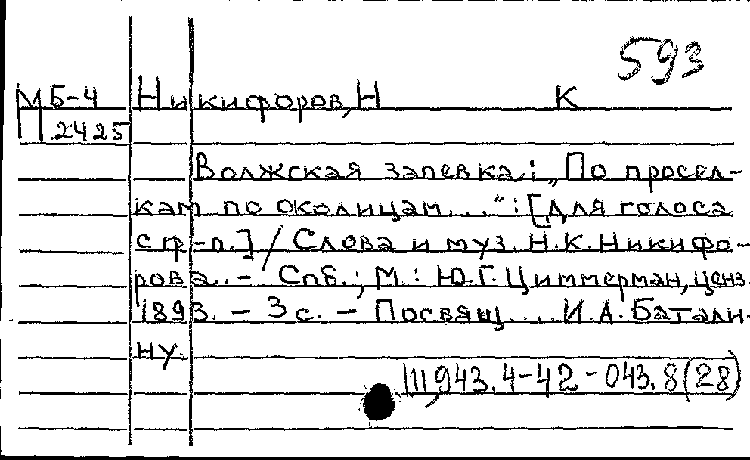 593
М Б-4 Никифоров, Н К
П 2425
Волжская запевка: „По просел-
кам по околицам...": [Для голоса
с ф-п.] / Слова и муз. Н.К. Никифо-
рова. - Спб.; М.: Ю.Г. Циммерман, ценз.
1893. - 3 с. - Посвящ. ... И.А. Батали-
ну.
943.4-42-043.8(28)